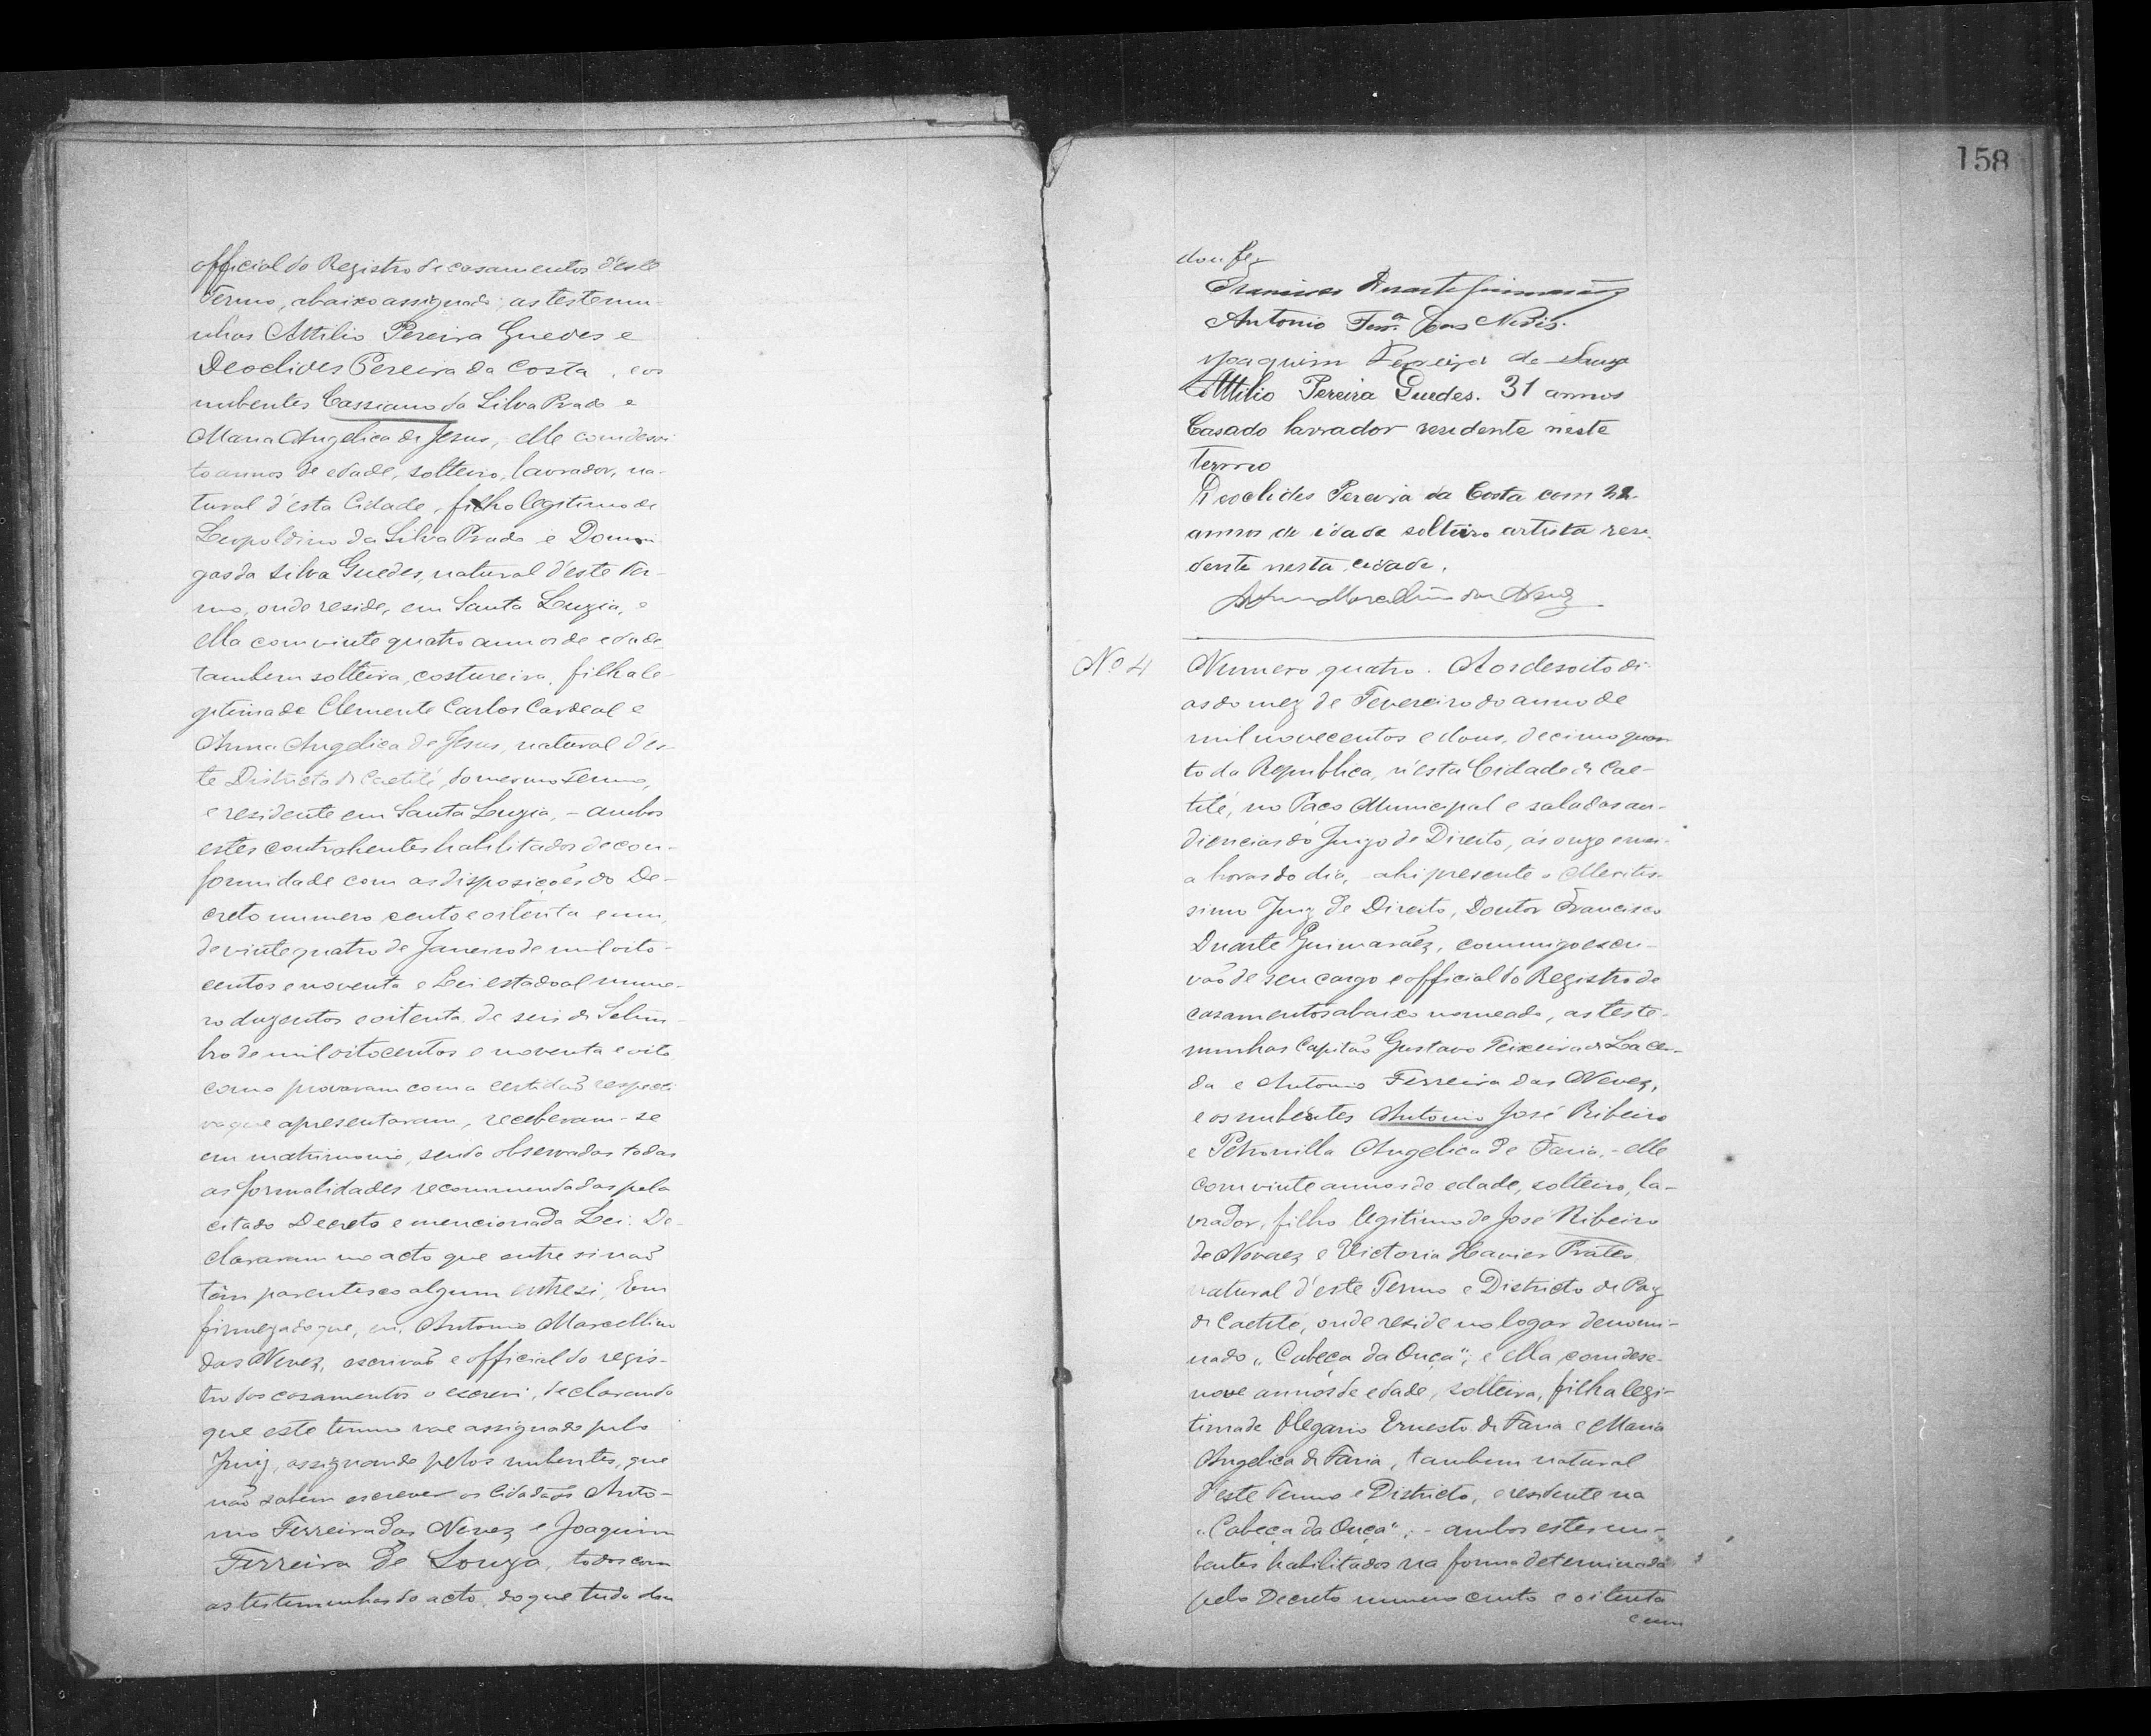 official do Registro de casamentos d'este
Termo, abaixo assignado, as testemu-
nhas Attilio Pereira Guedes e
Deoclides Pereira da Costa, e os
nubentes Cassiano da Silva Prado e
Maria Angelica de Jesus, elle com desoi
to annos de edade, solteiro, lavrador, na-
tural d'esta Cidade, filho legitimo de
Leopoldino da Silva Prado e Domin
gas da Silva Guedes, natural d'este Ter-
mo, onde reside, em Santa Luzia, e
ella com vinte quatro annos de edade,
tambem solteira, costureira, filha le-
gitima de Clemente Carlos Cardeal e
Anna Angelica de Jesus, natural d'es-
te Districto de Caetité, do mesmo Termo,
e residente em Santa Luzia, - ambos
estes contrahentes habilitados de con-
formidade com as disposições do De-
creto numero cento e oitenta e um,
de vinte quatro de Janeiro de mil oito-
centos e noventa e Lei estadoal nume-
ro duzentos e oitenta de seis de Setem-
bro de mil oitocentos e noventa e oito
como provaram com a certidão respecti
va que apresentaram, receberam-se
em matrimonio, sendo observadas todas
as formalidades recommendadas pelo
citado Decreto e mencionada Lei. De-
clararam no acto que entre si não
têm parentesco algum entre si, Em
firmeza do que, eu, Antonio Marcellino
das Neves, escrivão e official do regis-
tro dos casamentos o escrevi, declarando
que este termo vae assignado pelo
Juiz, assignando pelos nubentes, que
não sabem escrever os Cidadãos Anto-
nio Ferreira das Neves e Joaquim
Ferreira de Souza, todos com
as testemunhas do acto, do que tudo dou
158
dou fé
Francisco Duarte Guimarães
Antonio Ferrª das Neves.
Joaquim Ferreira de Souza
Attilio Pereira Guedes. 31 annos
Casado lavrador residente neste
Termo
Deoclides Pereira da Costa com 22
annos de idade solteiro artista resi
dente nesta cidade.
Antonio Marcellino das Neves
Nº 4
Numero quatro. Aos desoito di-
as do mez de Fevereiro do anno de
mil novecentos e dous, decimo quar
to da Republica, n'esta Cidade de Cae-
tité, no Paço Municipal e sala das au-
diencias do Juizo de Direito, ás onze e mei-
a horas do dia, ahi presente o Meritis-
simo Juiz de Direito, Doutor Francisco
Duarte Guimarães, commigo escri-
vão de seu cargo e official do Registro de
casamentos abaixo nomeado, as teste-
munhas Capitão Gustavo Teixeira de Lacer-
da e Antonio Ferreira das Neves,
e os nubentes Antonio José Ribeiro
e Petronilla Angelica de Faria, - elle
com vinte annos de edade, solteiro, la-
vrador, filho legitimo de José Ribeiro
de Novaes e Victoria Xavier Prates
natural d'este Termo e Districto de Paz
de Caetité, onde reside no logar denomi-
nado "Cabeça da Onça"; e ella com dese-
nove annos de edade, solteira, filha legi-
tima de Olegario Ernesto de Faria e Maria
Angelica de Faria, tambem natural
d'este Termo e Districto, e residente na
"Cabeça da Onça"; - ambos estes nu-
bentes habilitados na forma determinada
pelo Decreto numero cento e oitenta
e um